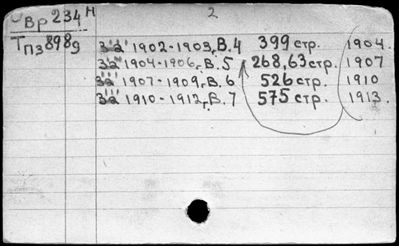 Вр 234 н 2
Тпз 8989
за 1902-1903, В. 4 399 стр. 1904.
за 1904-1906, В. 5 268, 63 стр. 1907
за 1907-1909, В. 6 526 стр. 1910
за 1910-1912, В. 7 575 стр. 1913.